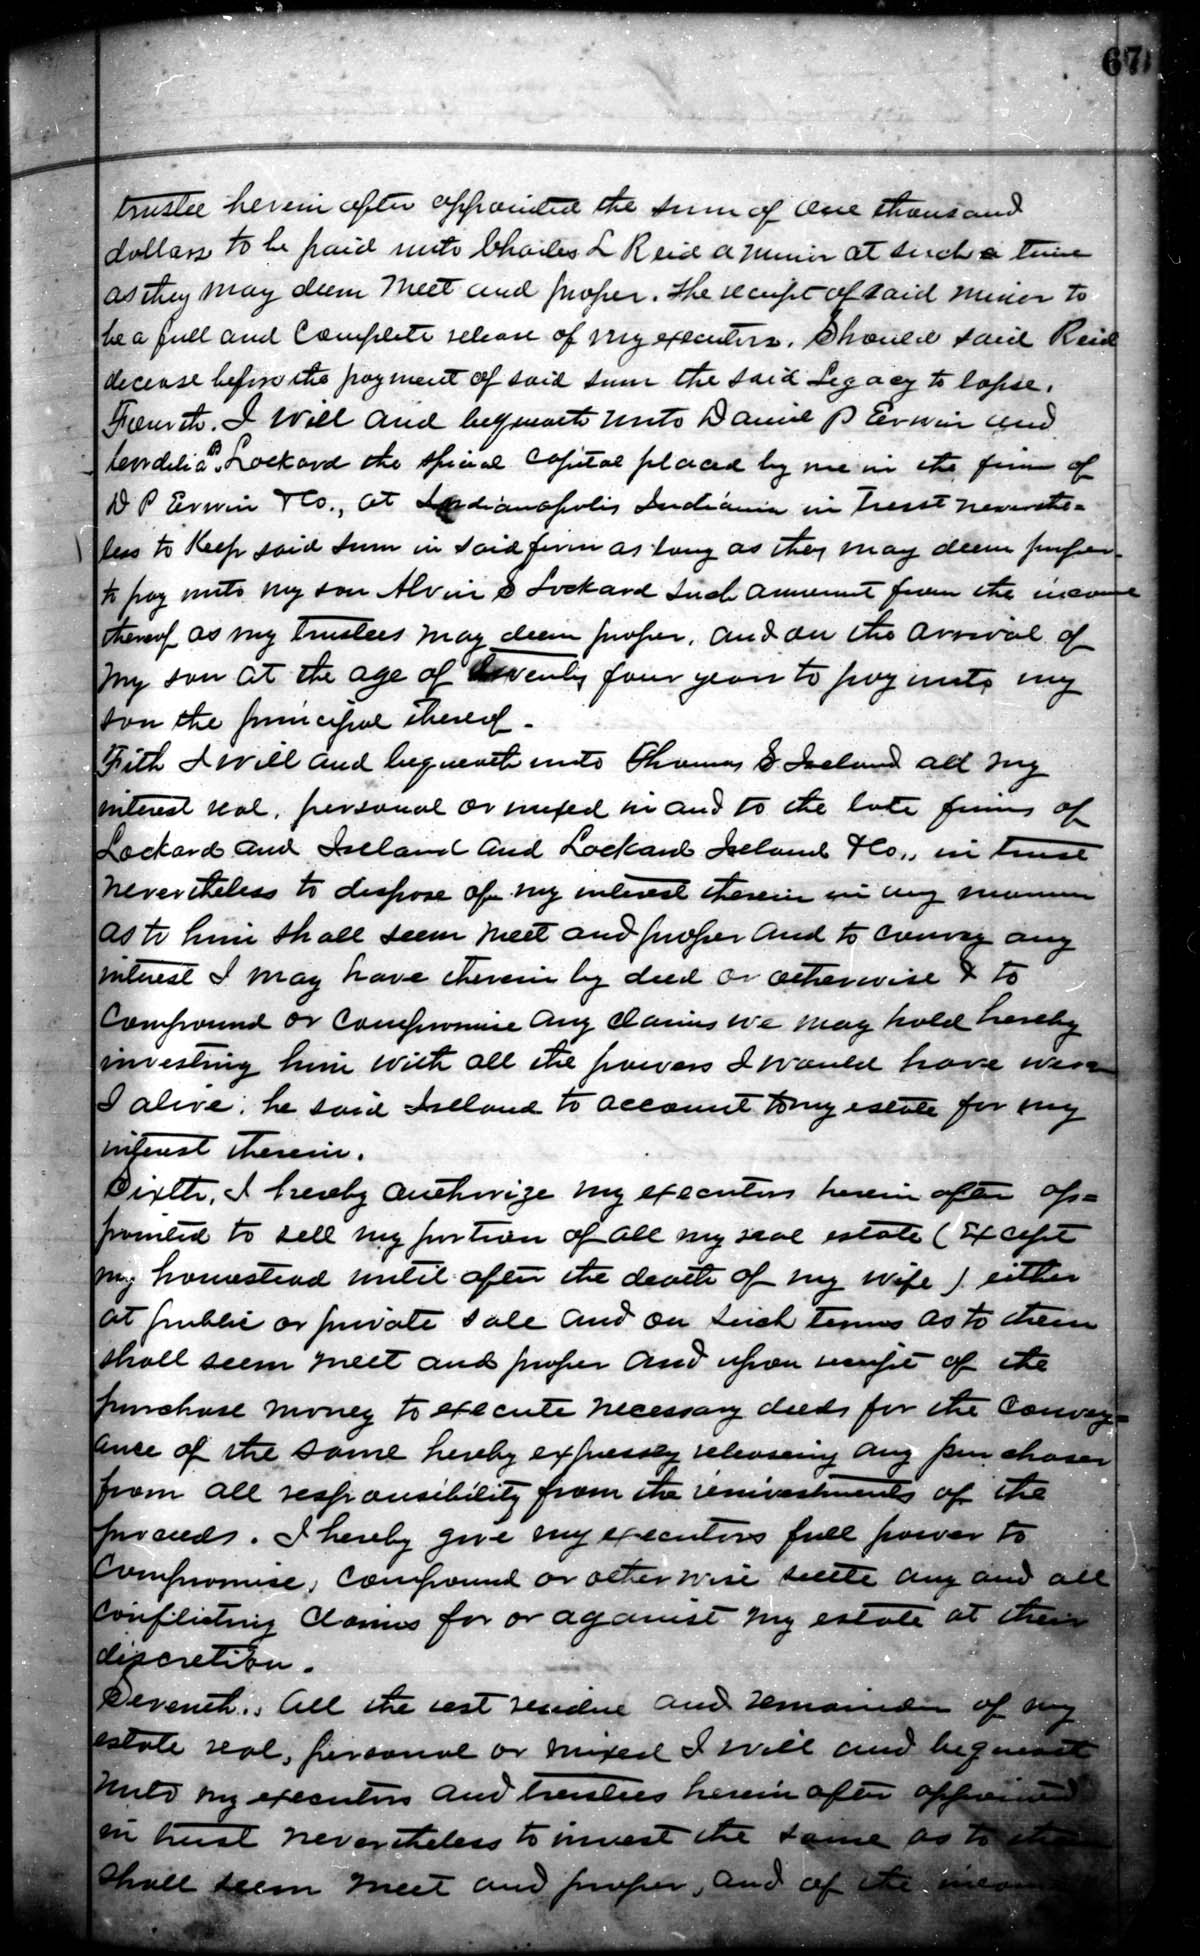 67
trustee herein after appointed the sum of one thousand
dollars to be paid unto Charles L Reid a minor at such a time
as they may deem meet and proper. The receipt of said minor to
be a full and complete release of my executors. Should said Reid
decease before the payment of said sum the said Legacy to lapse.
Fourth. I will and bequeath unto Daniel P Erwin and
Cordelia B. Lockard the special capital placed by me in the firm of
D P Erwin & Co., at Indianapolis Indiana in trust neverthe=
less to keep said sum in said firm as long as they may deem proper
to pay unto my son Alvin S Lockard such amount from the income
thereof as my trustees may deem proper, and on the arrival of
my son at the age of twenty four years to pay unto my
son the principal thereof.
Fith I will and bequeath unto Thomas S Ireland all my
interest real, personal or mixed in and to the late firms of
Lockard and Ireland and Lockard Ireland & Co., in trust
nevertheless to dispose of my interest therein in any manner
as to him shall seem meet and proper and to convey any
interest I may have therein by deed or otherwise & to
compound or compromise any claims we may hold hereby
investing him with all the powers I would have were
I alive; he said Ireland to account to my estate for my
interest therein.
Sixth, I hereby authorize my executors herein after ap=
pointed to sell my portion of all my real estate (Except
my homestead until after the death of my wife) either
at public or private sale and on such terms as to them
shall seem meet and proper and upon receipt of the
purchase money to execute necessary deeds for the convey=
ance of the same hereby expressly releasing any purchaser
from all responsibility from the reinvestments of the
proceeds. I hereby give my executors full power to
compromise, compound or otherwise settle any and all
conflicting claims for or against my estate at their
discretion.
Seventh., All the rest residue and remainder of my
estate real, personal or mixed I will and bequeath
unto my executors and trustees herein after appointed
in trust nevertheless to invest the same as to them
shall seem meet and proper, and of the income